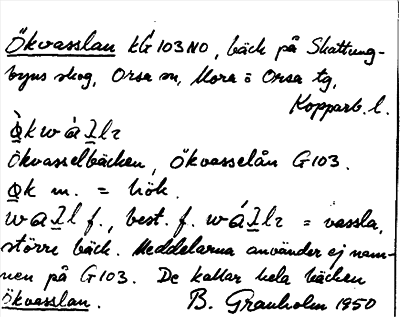 Ökvasslan kG 103 NO, bäck på Skattung-
byns skog, Orsa sn, Mora o Orsa tg,
Kopparb. l.
Ökvasselbäcken, Ökvasselån G103.
m. = hök.
f., best. f. = vassla,
större bäck. Meddelarna använder ej nam-
nen på G103. De kallar hela bäcken
Ökvasslan. B. Granholm 1950